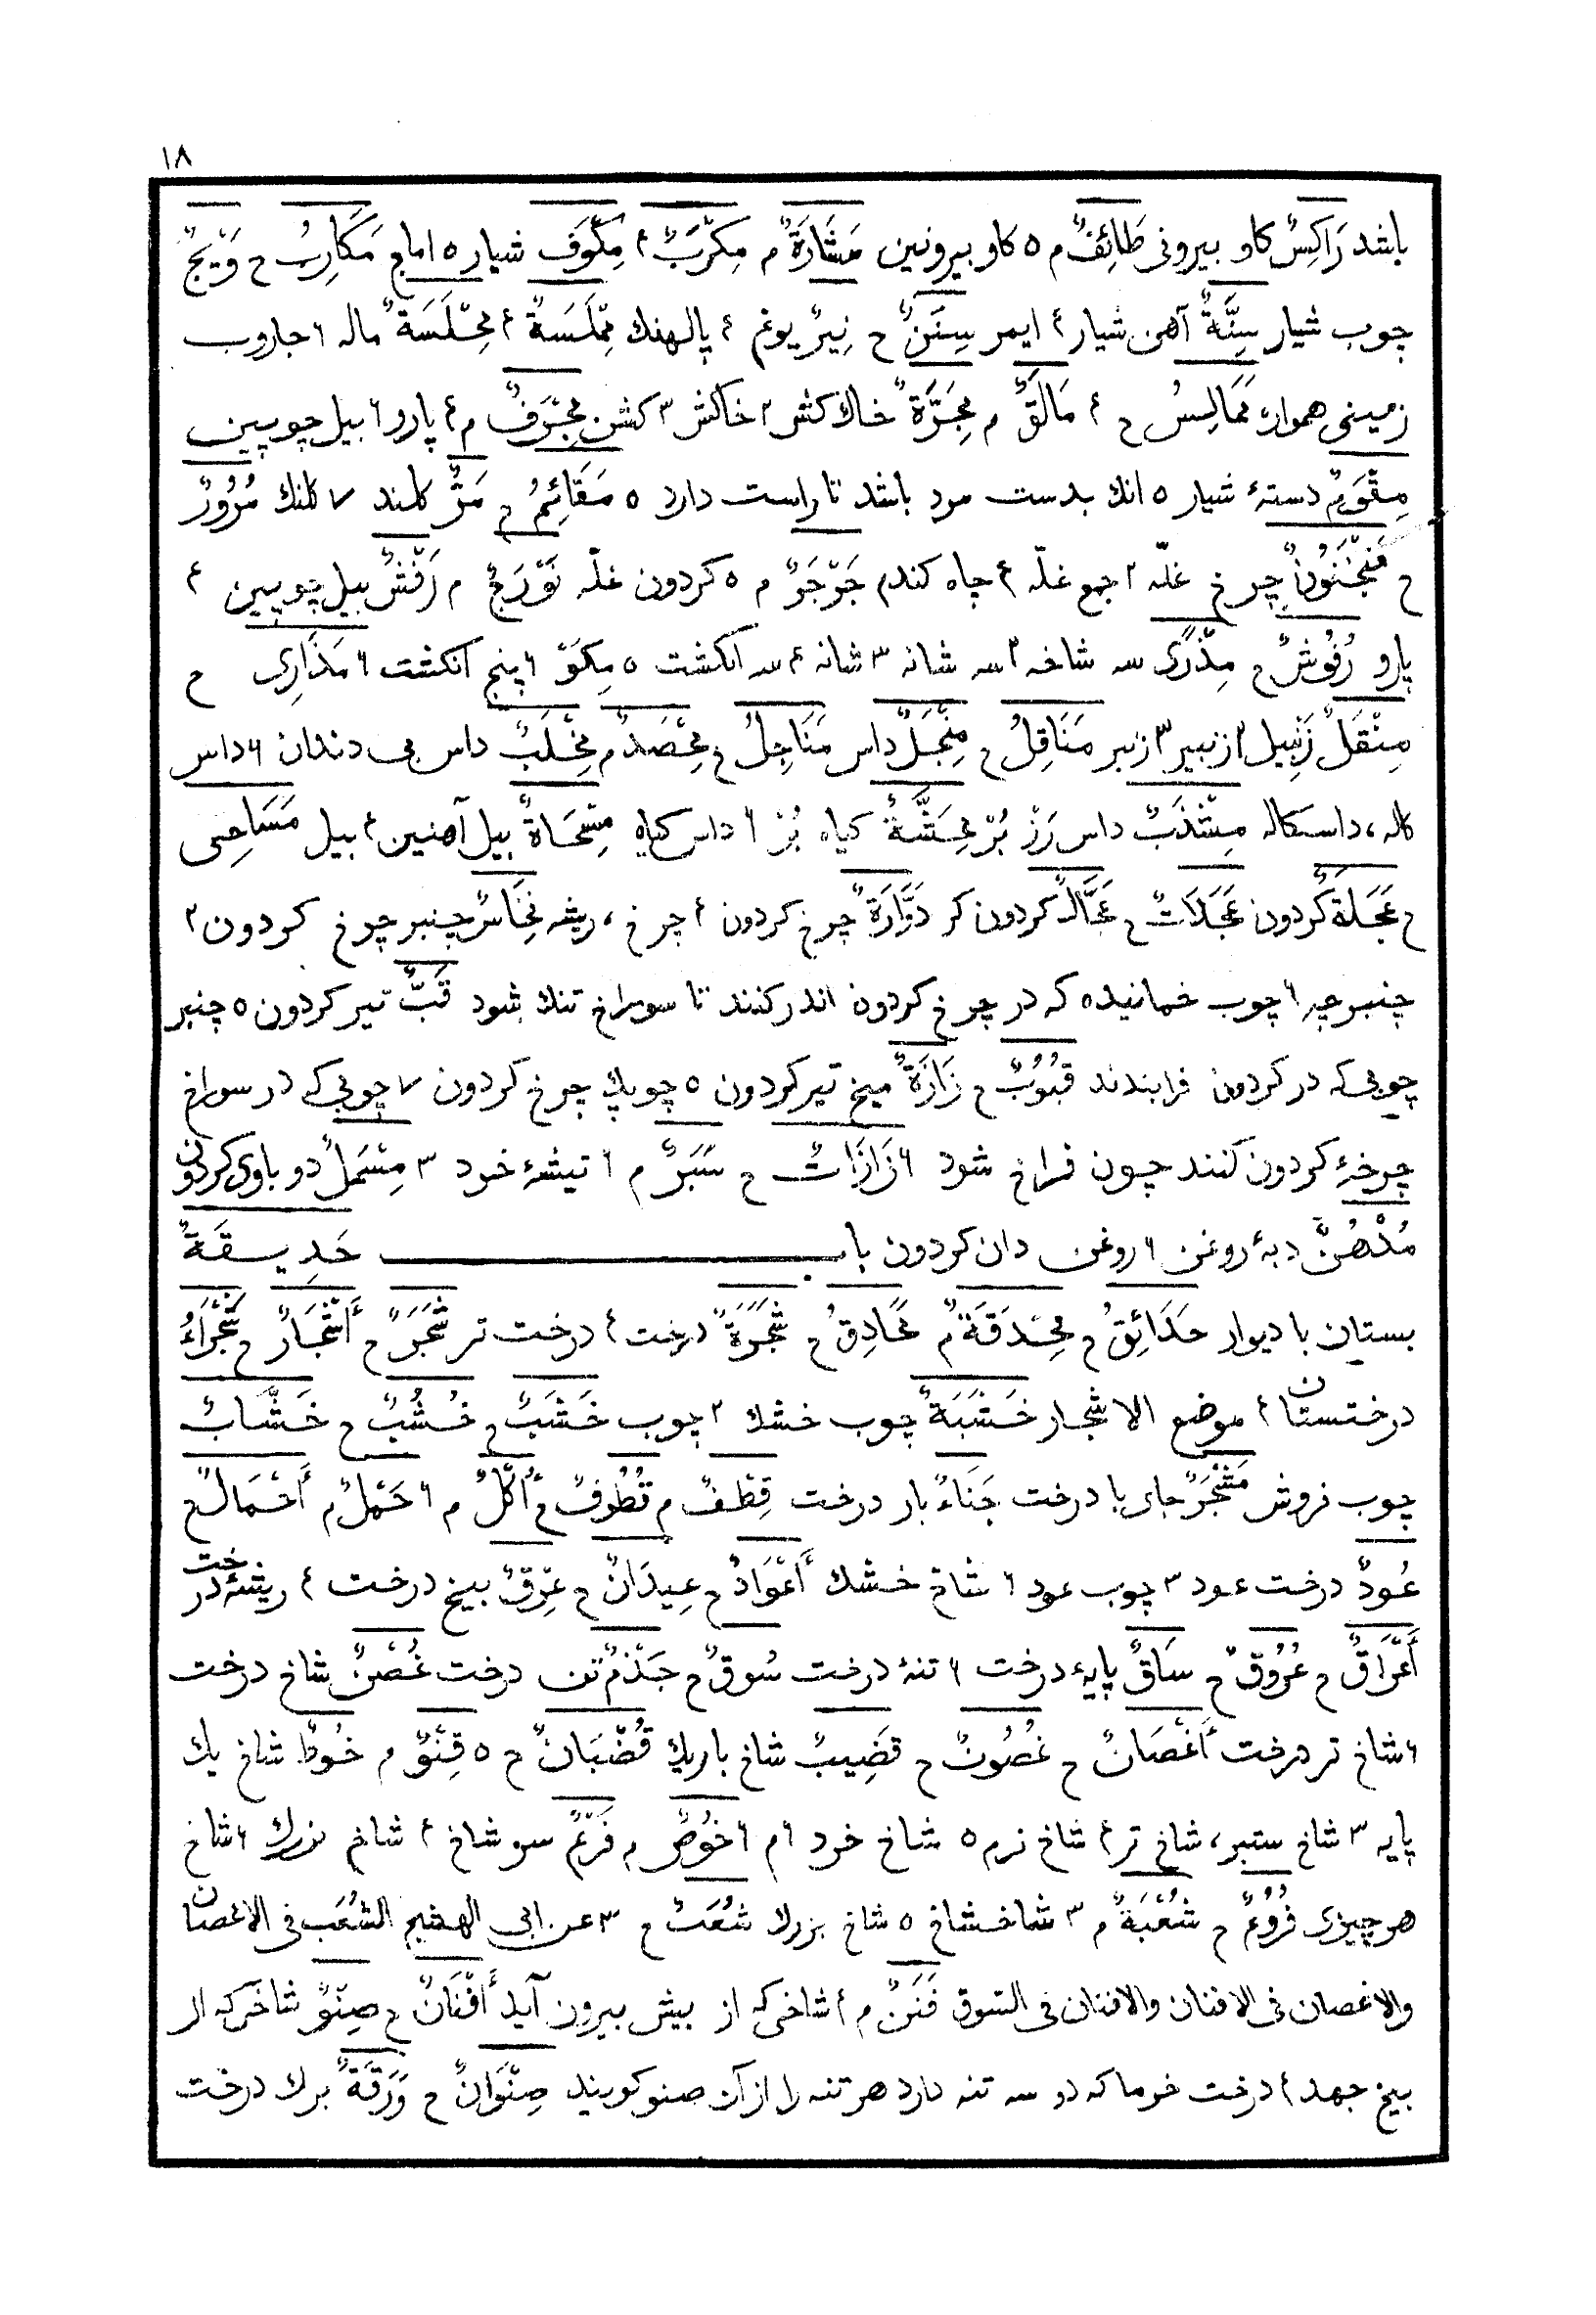 ١٨
باشد رَاكِسٌ كاو بيرونى طَائِفٌ م ٥ كاو بيرونين مَشَارَةٌ م مِكْرَبٌ ٤ مِكْوَف شيار ٥ اماج مَكَارِبُ ح وَيْجٌ
چوب شيار سِنَّةٌ آهن شيار ٤ ايمر سِنَنٌ ح نِيرٌ يوغ ٤ پالهنك مِمْلَسَةٌ ٤ مِحْلَسَةٌ ماله ٦ جاروب
زمينى هموار مَمَالِسُ ح ٤ مَالَقٌ م مِجَرَّةٌ خاك كش ٢ خاكش ٣ كشن مِجْرَفٌ م ٤ پارو ٦ بيل چوپين
مِقْوَمٌ دستهٔ شيار ٥ انك بدست مرد باشد تا راست دارد ٥ مَقَائِمُ ح مَرٌّ كلند ٧ كلنك مُرُورٌ
ح مَنْجَنُونٌ چرخ غلّه ٢ جمع غلّه ٤ چاه كندم جَرْجَرٌ م ٥ كردون غلّه نَوْرَجٌ م رَفْشٌ بيل چوپين ٤
پارو رُفُوشٌ ح مِذْرًى سه شاخه ٢ سه شانه ٣ شانه ٤ سه انكشت ٥ مِكَوّ ٦ پنج انكشت ٦ مَذَارِى ح
مِنْقَلٌ زَنبيل ٢ ازنبير ٣ زنبر مَنَاقِلُ ح مِنْجَلٌ داس مَنَاجِلُ ح مِحْصَدٌ م مِخْلَبٌ داس بى دندان ٦ داس
كاله، داسكاله مِشْذَبٌ داس رَزْ بُرْ مِحَشَّةٌ كياه بُرْ ٦ داس كياه مِسْحَاةٌ بيل آهنين ٤ بيل مَسَاحِى
ح عَجَلَةٌ كردون عَجَلَاتٌ ح عَجَّالٌ كردون كر دَوَّارَةٌ چرخ كردون ٤ چرخ، ريشه نِخَاسٌ چنبر چرخ كردون ٢
چنبر چه ٦ چوب خمانيده كه در چرخ كردون اندر كنند تا سوراخ تنك شود قَبٌّ تير كردون ٥ چنبر
چوبى كه در كردون فرابندند قُبُوبٌ ح زَازَةٌ ميخ تير كردون ٥ چوپك چرخ كردون ٧ چوبى كه در سوراخ
چرخهٔ كردون كنند چون فراخ شود ٦ زَازَاتٌ ح سَبَرٌ م ٦ تيشهٔ خود ٣ مِسْمَلٌ دو باوى كردون
مُدْهُنٌ دبهٔ روغن ٦ روغن دان كردون باب حَدِيقَةٌ
بستان با ديوار حَدَائِقُ ح مِحْدَقَةٌ م مَحَادِقُ ح شَجَرَةٌ درخت ٤ درخت تر شَجَرٌ ح أَشْجَارٌ ح شَجْرَاءُ
درختستان ٤ موضع الاشجار خَشَبَةٌ چوب خشك ٢ چوب خَشَبٌ ح خُشُبٌ ح خَشَّابٌ
چوب فروش مَشْجَرٌ جاى با درخت جَنَاءٌ بار درخت قِطْفٌ م قُطُوفٌ ح أُكُلٌ م ٦ حَمْلٌ م أَحْمَالٌ ح
عُودٌ درخت عود ٣ چوب عود ٦ شاخ خشك أَعْوَادٌ ح عِيدَانٌ ح عِرْقٌ بيخ درخت ٤ ريشهٔ درخت
أَعْرَاقٌ ح عُرُوقٌ ح سَاقٌ پايهٔ درخت ٦ تنهٔ درخت سُوقٌ ح جَذْمٌ تن درخت غُصْنٌ شاخ درخت
٦ شاخ تر درخت أَغْصَانٌ ح غُصُونٌ ح قَضِيبٌ شاخ باريك قُضْبَانٌ ح ٥ قِنْوٌ م خُوطٌ شاخ يك
پايه ٣ شاخ ستبر، شاخ تر ٤ شاخ نرم ٥ شاخ خرد ٦ م ٦ خُوصٌ م فَرْعٌ سو شاخ ٤ شاخ بزرك ٦ شاخ
هر چيزى فُرُوعٌ ح شُعْبَةٌ م ٣ شاخشاخ ٥ شاخ بزرك شُعَبٌ ح ٣ عن ابى الهشيم الشُعَب فى الاغصان
والاغصان فى الافنان والافنان فى السّوق فَنَنٌ م ٤ شاخى كه از بيش بيرون آيد أَفْنَانٌ ح صِنْوٌ شاخى كه از
بيخ جهد ٤ درخت خرما كه دو سه تنه دارد هر تنه را از آن صنو كويند صِنْوَانٌ ح وَرَقَةٌ برك درخت